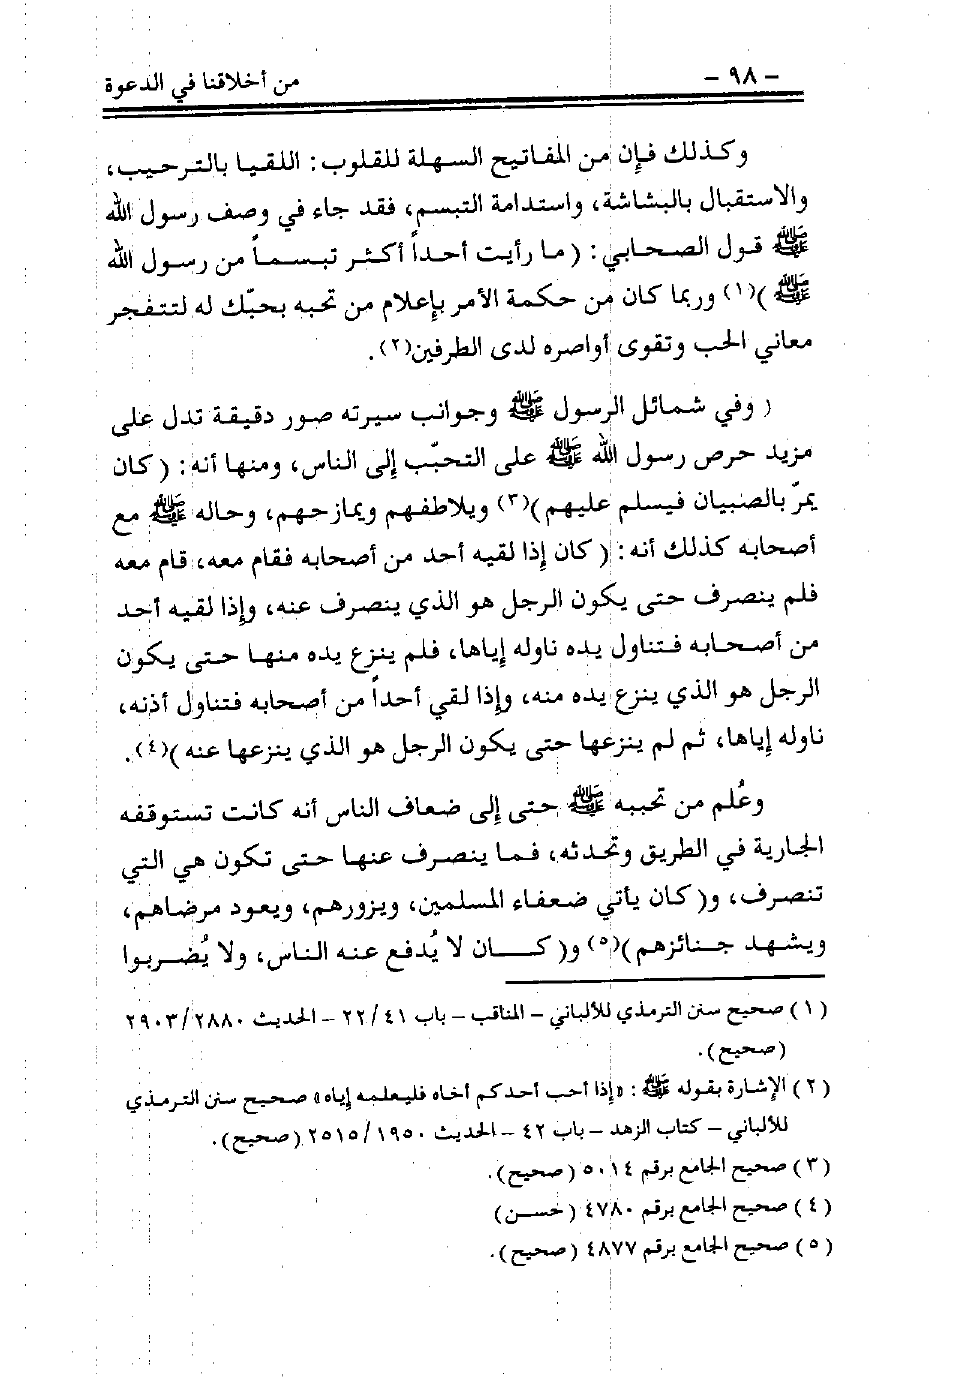 - ٩٨ - من أخلاقنا في الدعوة
وكذلك فإن من المفاتيح السهلة للقلوب: اللقيا بالترحيب،
والاستقبال بالبشاشة، واستدامة التبسم، فقد جاء في وصف رسول الله
ﷺ قول الصحابي: ( ما رأيت أحداً أكثر تبسماً من رسول الله
ﷺ )(١) وربما كان من حكمة الأمر بإعلام من تحبه بحبّك له لتتفجر
معاني الحب وتقوى أواصره لدى الطرفين(٢).
( وفي شمائل الرسول ﷺ وجوانب سيرته صور دقيقة تدل على
مزيد حرص رسول الله ﷺ على التحبّب إلى الناس، ومنها أنه: ( كان
يمرّ بالصبيان فيسلم عليهم )(٣) ويلاطفهم ويمازحهم، وحاله ﷺ مع
أصحابه كذلك أنه: ( كان إذا لقيه أحد من أصحابه فقام معه، قام معه
فلم ينصرف حتى يكون الرجل هو الذي ينصرف عنه، وإذا لقيه أحد
من أصحابه فتناول يده ناوله إياها، فلم ينزع يده منها حتى يكون
الرجل هو الذي ينزع يده منه، وإذا لقي أحداً من أصحابه فتناول أذنه،
ناوله إياها، ثم لم ينزعها حتى يكون الرجل هو الذي ينزعها عنه )(٤).
وعُلم من تحببه ﷺ حتى إلى ضعاف الناس أنه كانت تستوقفه
الجارية في الطريق وتحدثه، فما ينصرف عنها حتى تكون هي التي
تنصرف، و( كان يأتي ضعفاء المسلمين، ويزورهم، ويعود مرضاهم،
ويشهد جنائزهم )(٥) و( كان لا يُدفع عنه الناس، ولا يُضربوا
(١) صحيح سنن الترمذي للألباني - المناقب - باب ٢٢/٤١ - الحديث ٢٩٠٣/٢٨٨٠
(صحيح).
(٢) الإشارة بقوله ﷺ: «إذا أحب أحدكم أخاه فليعلمه إياه» صحيح سنن الترمذي
للألباني - كتاب الزهد - باب ٤٢ - الحديث ٢٥١٥/١٩٥٠ (صحيح).
(٣) صحيح الجامع برقم ٥٠١٤ (صحيح).
(٤) صحيح الجامع برقم ٤٧٨٠ (حسن)
(٥) صحيح الجامع برقم ٤٨٧٧ (صحيح).